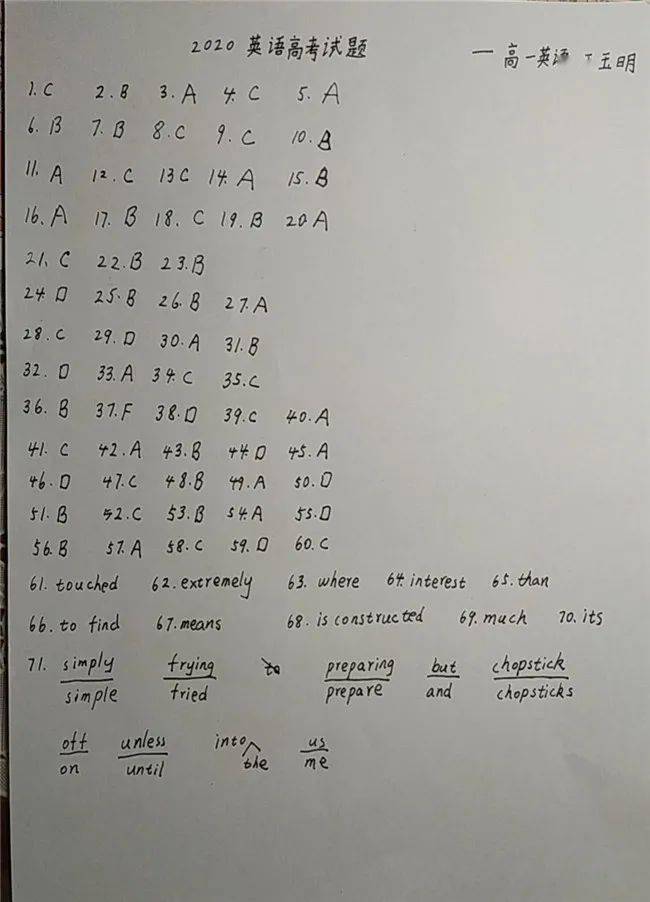 2020 英语高考试题
— 高一英语 王明
1. C 2. B 3. A 4. C 5. A
6. B 7. B 8. C 9. C 10. B
11. A 12. C 13 C 14. A 15. B
16. A 17. B 18. C 19. B 20. A
21. C 22. B 23. B
24. D 25. B 26. B 27. A
28. C 29. D 30. A 31. B
32. D 33. A 34. C 35. C
36. B 37. F 38. D 39. C 40. A
41. C 42. A 43. B 44. D 45. A
46. D 47. C 48. B 49. A 50. D
51. B 52. C 53. B 54. A 55. D
56. B 57. A 58. C 59. D 60. C
61. touched 62. extremely 63. where 64. interest 65. than
66. to find 67. means 68. is constructed 69. much 70. its
71. simply frying to preparing but chopstick
simple fried prepare and chopsticks
off unless into us
on until the me